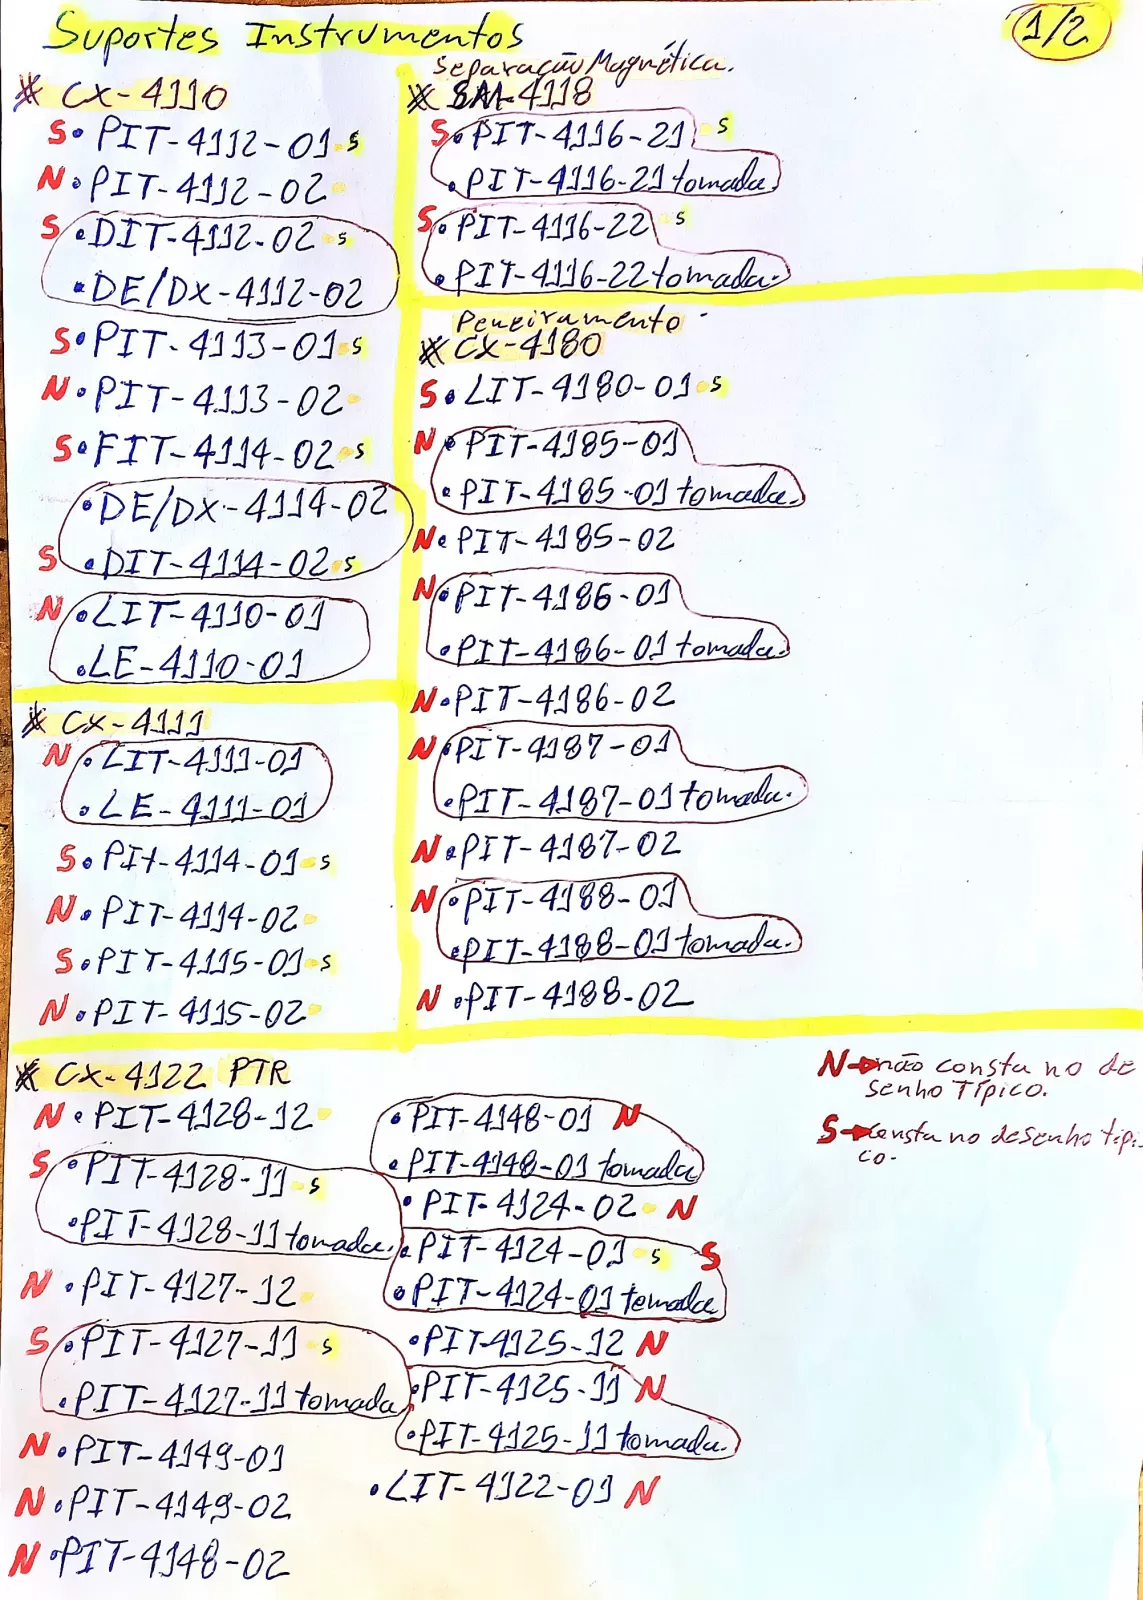 Suportes Instrumentos
1/2
* CX-4110
S • PIT-4112-01 s
N • PIT-4112-02
S • DIT-4112-02 s
• DE/DX-4112-02
S • PIT-4113-01 s
N • PIT-4113-02
S • FIT-4114-02 s
• DE/DX-4114-02
S • DIT-4114-02 s
N • LIT-4110-01
• LE-4110-01
* CX-4111
N • LIT-4111-01
• LE-4111-01
S • PIt-4114-01 s
N • PIT-4114-02
S • PIT-4115-01 s
N • PIT-4115-02
Separação Magnética.
* SM-4118
S • PIT-4116-21 s
• PIT-4116-21 tomada.
S • PIT-4116-22 s
• PIT-4116-22 tomada.
Peneiramento
* CX-4180
S • LIT-4180-01 s
N • PIT-4185-01
• PIT-4185-01 tomada.
N • PIT-4185-02
N • PIT-4186-01
• PIT-4186-01 tomada.
N • PIT-4186-02
N • PIT-4187-01
• PIT-4187-01 tomada.
N • PIT-4187-02
N • PIT-4188-01
• PIT-4188-01 tomada.
N • PIT-4188-02
* CX-4122 PTR
N • PIT-4128-12
S • PIT-4128-11 s
• PIT-4128-11 tomada.
N • PIT-4127-12
S • PIT-4127-11 s
• PIT-4127-11 tomada
N • PIT-4149-01
N • PIT-4149-02
N • PIT-4148-02
• PIT-4148-01 N
• PIT-4148-01 tomada
• PIT-4124-02 N
• PIT-4124-01 s S
• PIT-4124-01 tomada
• PIT-4125-12 N
• PIT-4125-11 N
• PIT-4125-11 tomada.
• LIT-4122-01 N
N → não consta no de
senho Típico.
S → Consta no desenho tipi
co.